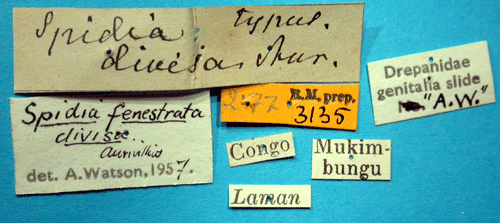 Spidia Typus.
divisa Aur.
Spidia fenestrata
divisa..
Aurivillius
det. A. Watson, 1957.
2:77 R.M. prep.
3135
Drepanidae
genitalia slide
"A.W."
Congo
Mukim-
bungu
Laman